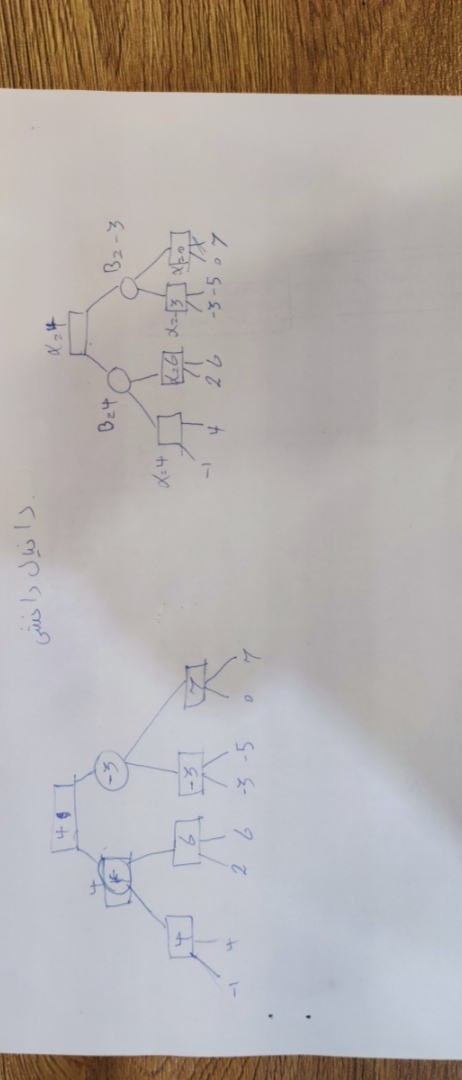 دانیال دانش
4
4
4
-3
4
6
-3
7
-1 4 2 6 -3 -5 0 7
α=4
B=4
B=-3
α=4
α=6
α=-3
α=0
-1 4 2 6 -3 -5 0 7